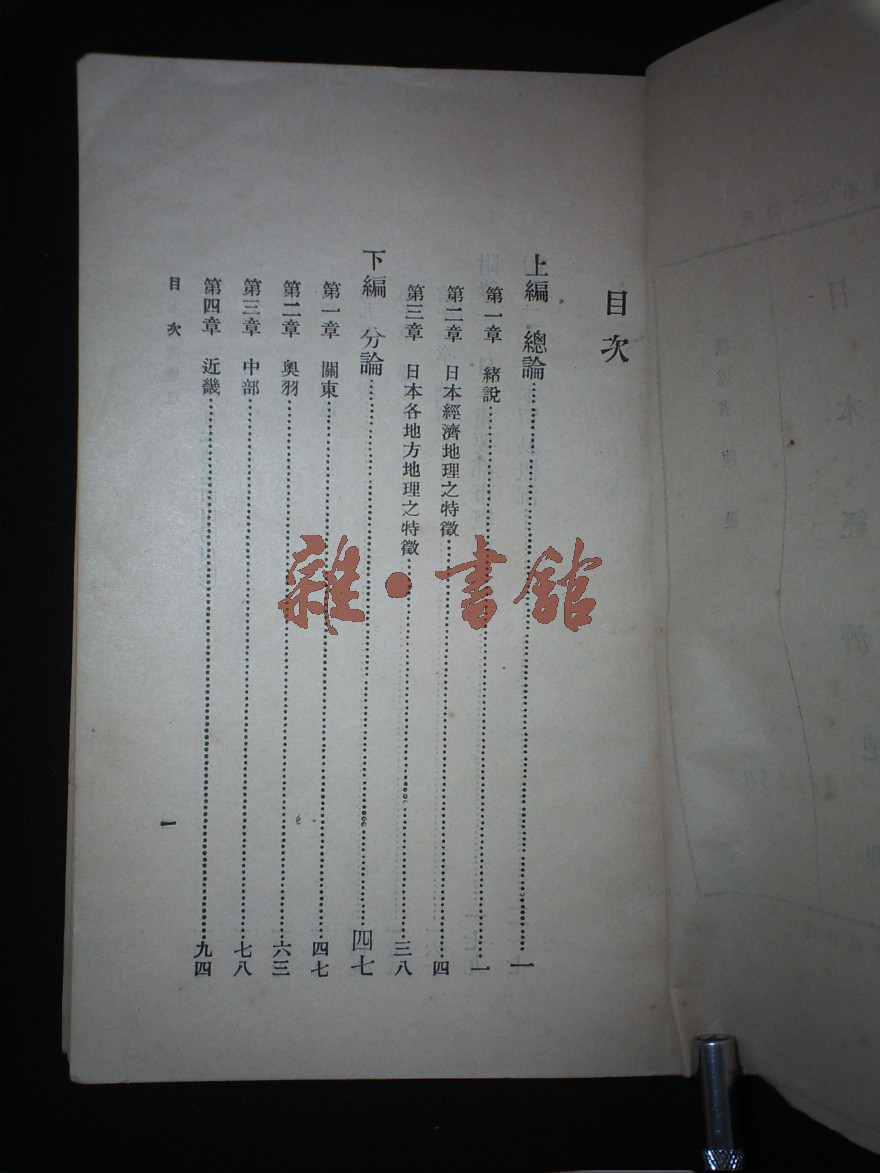 目次
上編 總論……一
第一章 緒說……一
第二章 日本經濟地理之特徵……四
第三章 日本各地方地理之特徵……三八
下編 分論……四七
第一章 關東……四七
第二章 奧羽……六三
第三章 中部……七八
第四章 近畿……九四
目次
一
雜·書館